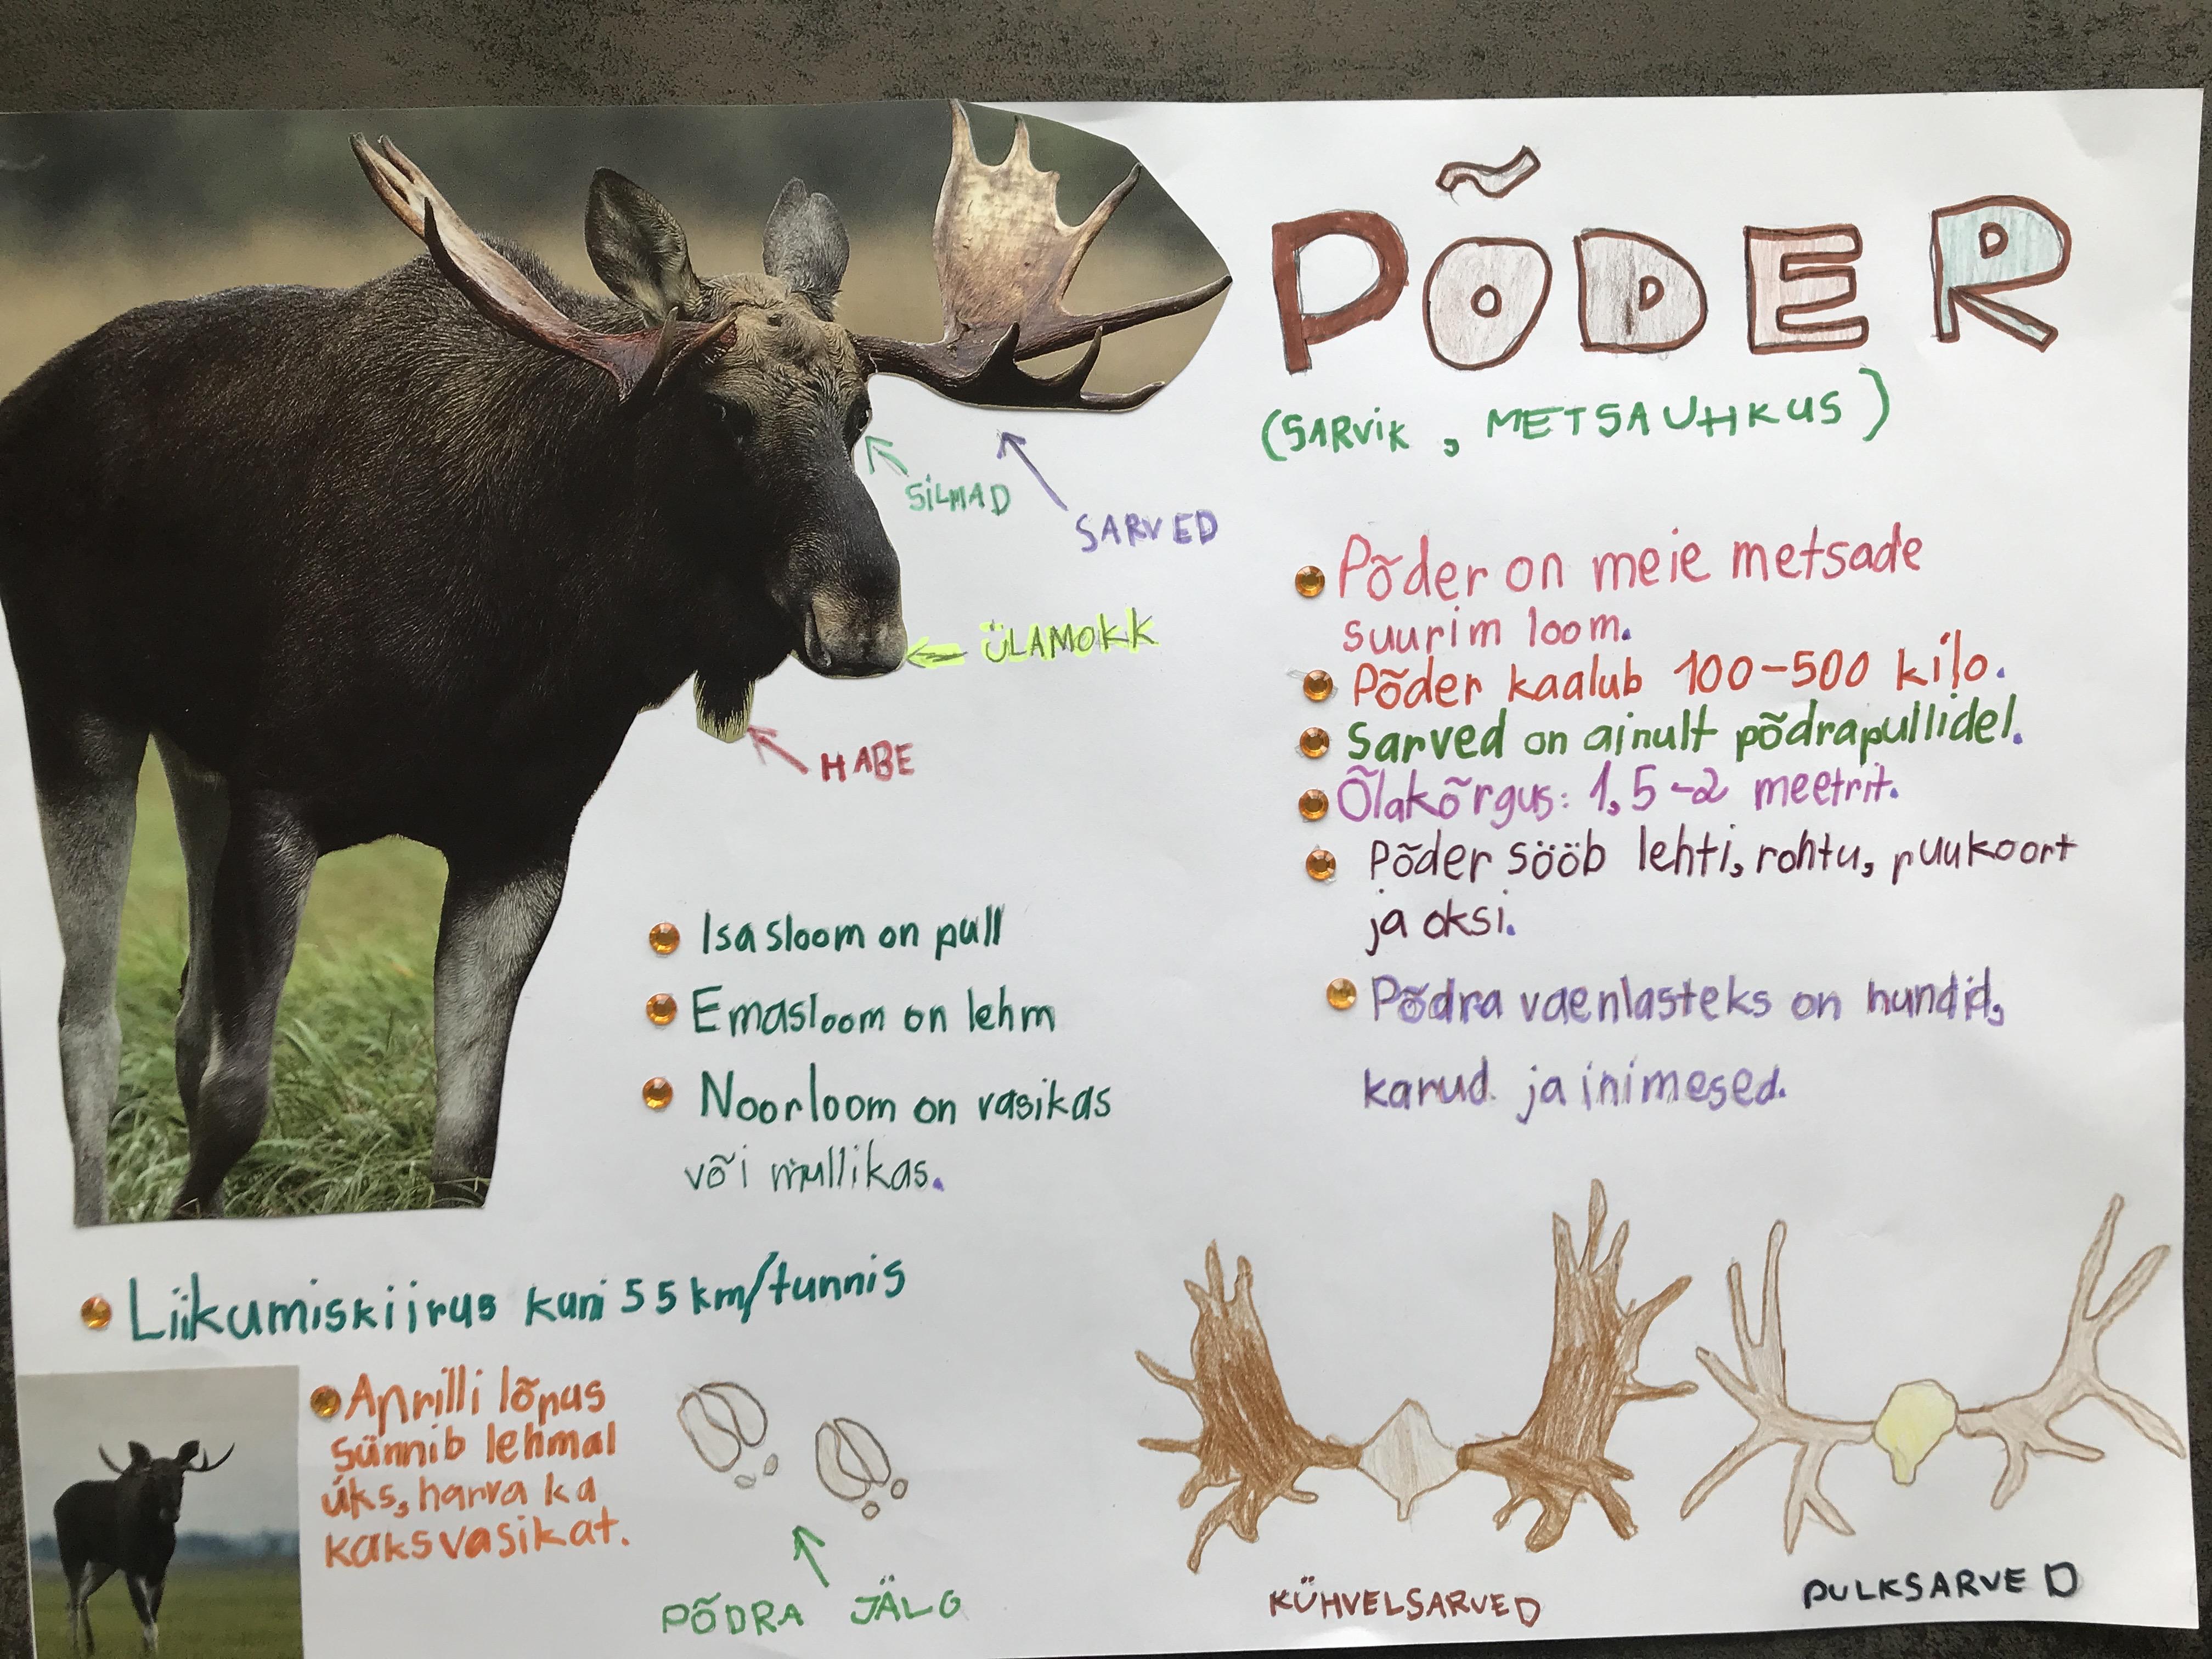 PÕDER
(SARVIK, METSAUHKUS)
SILMAD
SARVED
ÜLAMOKK
HABE
Põder on meie metsade
suurim loom.
Põder kaalub 100-500 kilo.
Sarved on ainult põdrapullidel.
Õlakõrgus: 1,5-2 meetrit.
Põder sööb lehti, rohtu, puukoort
ja oksi.
Põdra vaenlasteks on hundid,
karud ja inimesed.
Isasloom on pull
Emasloom on lehm
Noorloom on vasikas
või mullikas.
Liikumiskiirus kuni 55 km/tunnis
Aprilli lõpus
sünnib lehmal
üks, harva ka
kaks vasikat.
PÕDRA JÄLG
KÜHVELSARVED
PULKSARVED